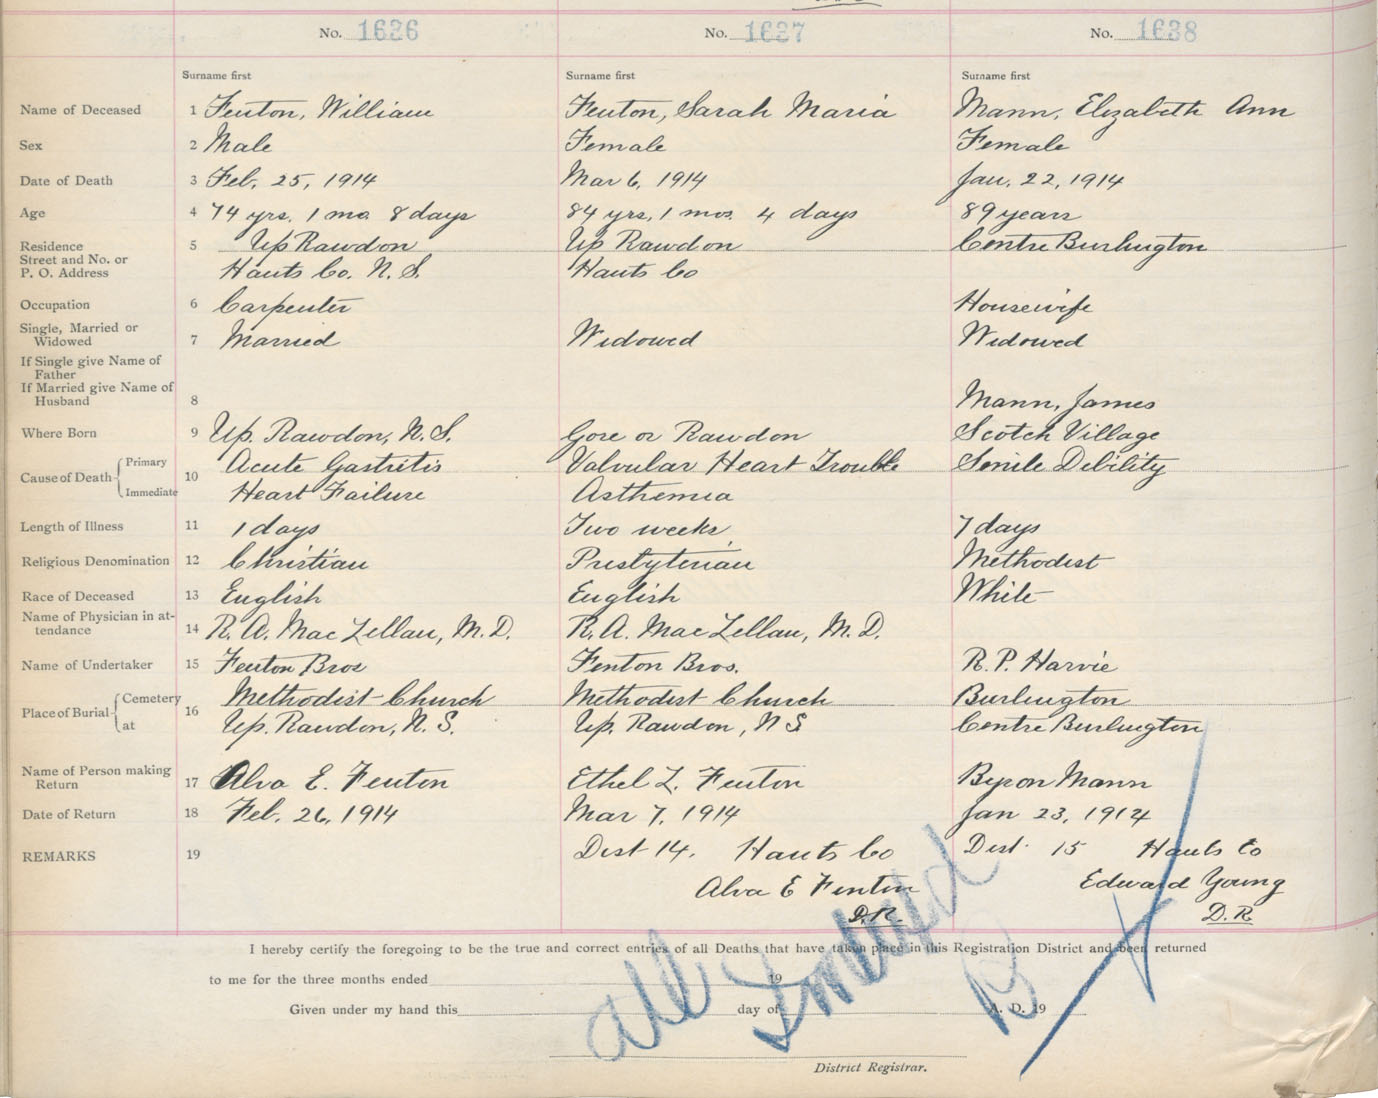 No. 1636 No. 1637 No. 1638
Surname first Surname first Surname first
Name of Deceased 1 Fenton, William Fenton, Sarah Maria Mann, Elizabeth Ann
Sex 2 Male Female Female
Date of Death 3 Feb. 25, 1914 Mar 6, 1914 Jan. 22, 1914
Age 4 74 yrs, 1 mo. 8 days 84 yrs, 1 mos. 4 days 89 years
Residence 5 Up Rawdon Up Rawdon Centre Burlington
Street and No. or
P. O. Address Hants Co. N. S. Hants Co
Occupation 6 Carpenter Housewife
Single, Married or
Widowed 7 Married Widowed Widowed
If Single give Name of
Father
If Married give Name of
Husband 8 Mann, James
Where Born 9 Up. Rawdon, N. S. Gore or Rawdon Scotch Village
Cause of Death Primary 10 Acute Gastritis Valvular Heart Trouble Senile Debility
Immediate Heart Failure Asthemia
Length of Illness 11 1 days Two weeks, 7 days
Religious Denomination 12 Christian Presbyterian Methodist
Race of Deceased 13 English English White
Name of Physician in at-
tendance 14 R. A. MacLellan, M. D. R. A. MacLellan, M. D.
Name of Undertaker 15 Fenton Bros Fenton Bros. R. P. Harvie
Place of Burial Cemetery 16 Methodist Church Methodist Church Burlington
at Up. Rawdon, N. S. Up. Rawdon, N S Centre Burlington
Name of Person making
Return 17 Alva E. Fenton Ethel L. Fenton Byron Mann
Date of Return 18 Feb. 26, 1914 Mar 7, 1914 Jan 23, 1914
REMARKS 19 Dist 14. Hants Co Dist. 15 Hants Co
Alva E Fenton Edward Young
D.R. D. R
I hereby certify the foregoing to be the true and correct entries of all Deaths that have taken place in this Registration District and been returned
to me for the three months ended 19
Given under my hand this day of A. D. 19
all
District Registrar.